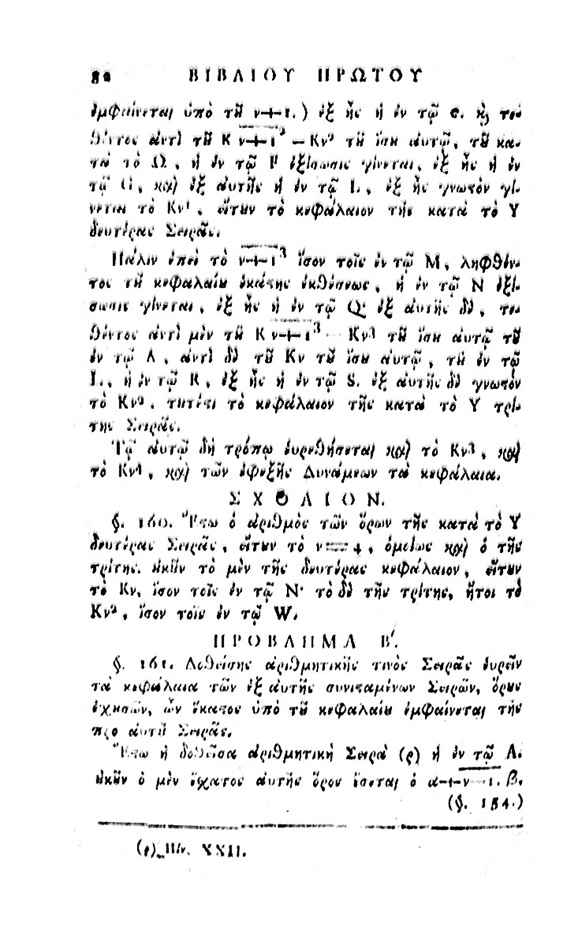 82 ΒΙΒΛΙΟΥ ΠΡΩΤΟΥ
ἐμφαίνεται ὑπὸ τῦ ν+1.) ἐξ ἧς ἡ ἐν τῷ
θέντος ἀντὶ τῦ Κ ν+1² — Κν² τῦ ἴσυ αὐτῷ, τῦ κα-
τὰ τὸ Ω, ἡ ἐν τῷ F ἐξίσωσις γίνεται, ἐξ ἧς ἡ ἐν
τῷ G, καὶ ἐξ αὐτῆς ἡ ἐν τῷ I., ἐξ ἧς γνωτὸν γί-
νεται τὸ Κν¹, εἴτυν τὸ κεφάλαιον τῆς κατὰ τὸ Υ
δευτέρας Σειρᾶς.
Πάλιν ἐπεὶ τὸ ν+1³ ἴσον τοῖς ἐν τῷ Μ, ληφθέν-
τος τῦ κεφαλαίυ ἑκάστης ἐκθέσεως, ἡ ἐν τῷ Ν ἐξί-
σωσις γίνεται, ἐξ ἧς ἡ ἐν τῷ Q· ἐξ αὐτῆς δὲ, τε-
θέντος ἀντὶ μὲν τῦ Κ ν+1³ — Κν³ τῦ ἴσυ αὐτῷ τῦ
ἐν τῷ Λ, ἀντὶ δὲ τῦ Κν τῦ ἴσυ αὐτῷ, τῦ ἐν τῷ
I., ἡ ἐν τῷ R, ἐξ ἧς ἡ ἐν τῷ S. ἐξ αὐτῆς δὲ γνωτὸν
τὸ Κν², τυτέστι τὸ κεφάλαιον τῆς κατὰ τὸ Υ τρί-
της Σειρᾶς.
Τῷ αὐτῷ δὴ τρόπῳ εὑρεθήσεται καὶ τὸ Κν³, καὶ
τὸ Κν⁴, καὶ τῶν ἐφεξῆς Δυνάμεων τὰ κεφάλαια.
ΣΧΟΛΙΟΝ.
§. 160. Ἔστω ὁ ἀριθμὸς τῶν ὅρων τῆς κατὰ τὸ Υ
δευτέρας Σειρᾶς, εἴτυν τὸ ν=4, ὁμοίως καὶ ὁ τῆς
τρίτης. ὐκῦν τὸ μὲν τῆς δευτέρας κεφάλαιον, εἴτυν
τὸ Κν, ἴσον τοῖς ἐν τῷ Ν· τὸ δὲ τῆς τρίτης, ἤτοι τὸ
Κν², ἴσον τοῖς ἐν τῷ W.
ΠΡΟΒΛΗΜΑ Β΄.
§. 161. Δοθείσης ἀριθμητικῆς τινὸς Σειρᾶς εὑρεῖν
τὰ κεφάλαια τῶν ἐξ αὐτῆς συνισταμένων Σειρῶν, ὅρυς
ἐχυσῶν, ὧν ἕκαστος ὑπὸ τῦ κεφαλαίυ ἐμφαίνεται τῆς
πρὸ αὐτῦ Σειρᾶς.
Ἔστω ἡ δοθεῖσα ἀριθμητικὴ Σειρὰ (ς) ἡ ἐν τῷ Α.
ὐκῦν ὁ μὲν ἔσχατος αὐτῆς ὅρος ἔσεται ὁ α+ν—1. β.
(§. 154.)
(ς) Πίν. XXII.